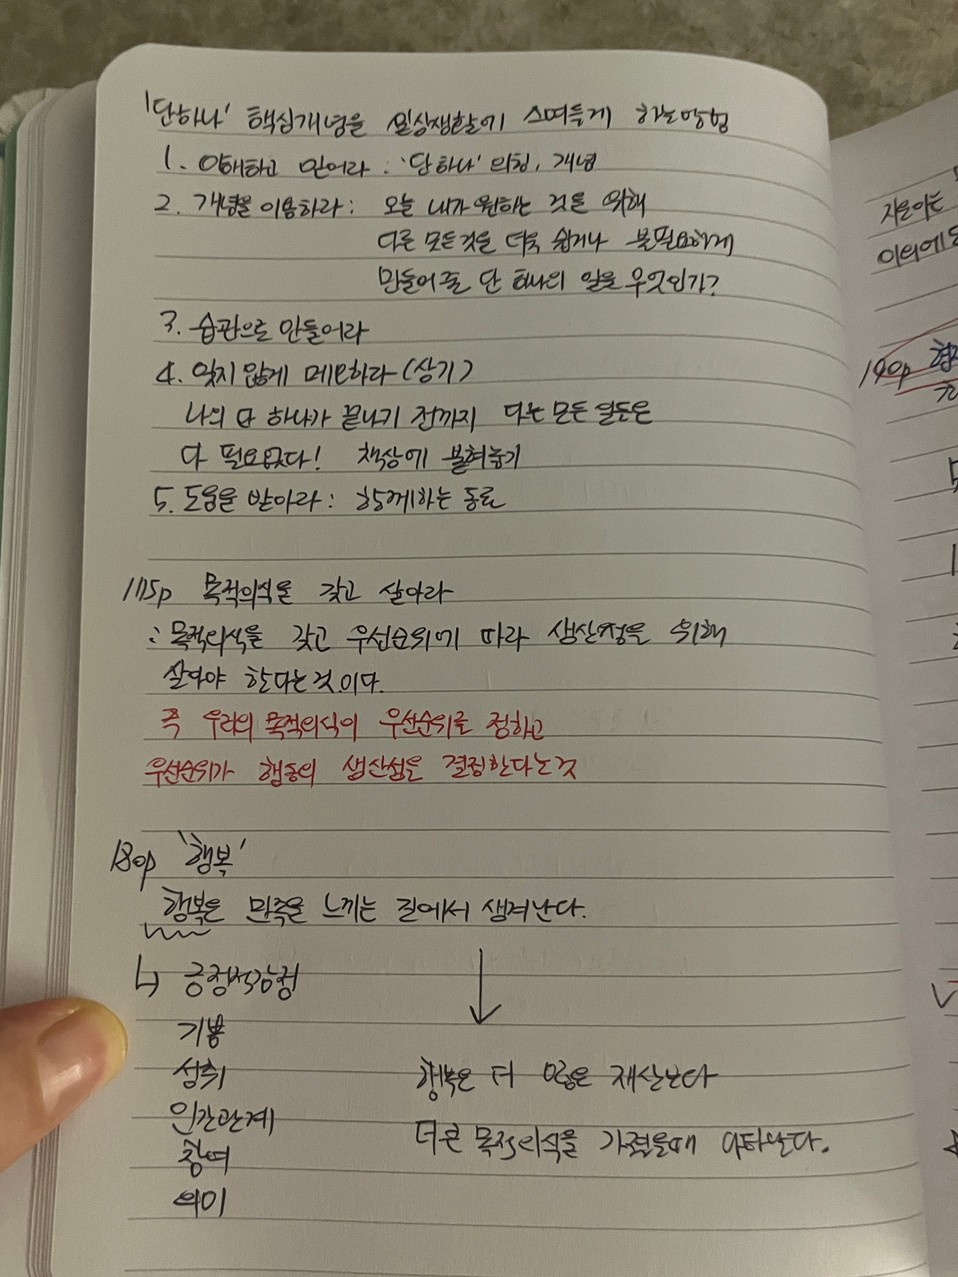 '단하나' 핵심개념을 일상생활에 스며들게 하는방법
1. 이해하고 믿어라 : '단 하나'의힘, 개념
2. 개념을 이용하라 : 오늘 내가 원하는 것을 위해
다른 모든것을 더욱 쉽거나 불필요하게
만들어줄 단 하나의 일은 무엇인가?
3. 습관으로 만들어라
4. 잊지 않게 메모하라 (상기)
나의 단 하나가 끝나기 전까지 다른 모든 일들은
다 필요없다! 책상에 붙혀놓기
5. 도움을 받아라 : 함께하는 동료
175p 목적의식을 갖고 살아라
: 목적의식을 갖고 우선순위에 따라 생산성을 위해
살아야 한다는것이다.
즉 우리의 목적의식이 우선순위를 정하고
우선순위가 행동의 생산성을 결정한다는것
180p '행복'
행복은 만족을 느끼는 길에서 생겨난다.
↳ 긍정적감정
기쁨
성취
인간관계
참여
의미
↓
행복은 더 많은 재산보다
더큰 목적의식을 가졌을때 나타난다.
이외에도
190p